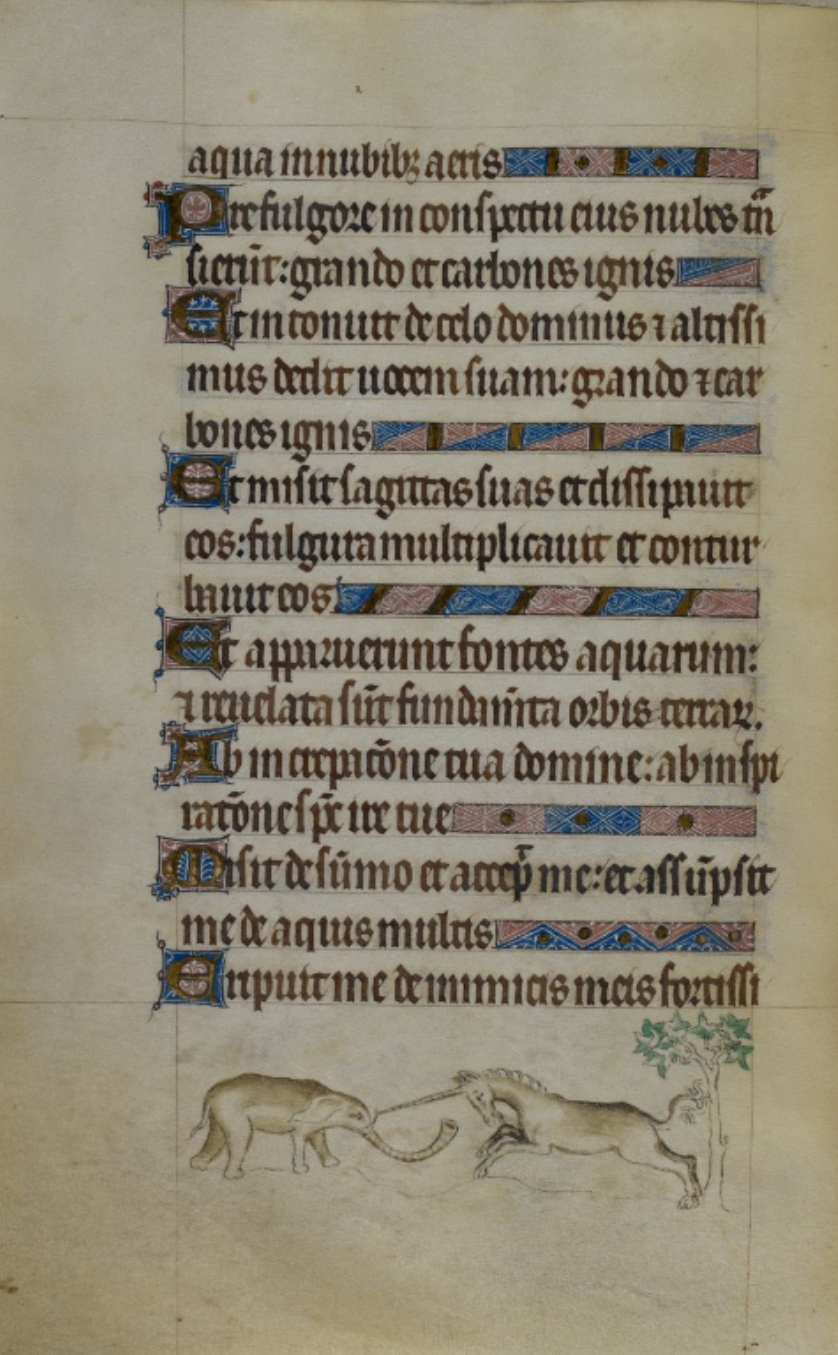 aqua in nubibꝫ aeris
Pre fulgore in conspectu eius nubes tñ
sierũt: grando et carbones ignis
Et intonuit de celo dominus ⁊ altissi
mus dedit uocem suam: grando ⁊ car
bones ignis
Et misit sagittas suas et dissipauit
eos: fulgura multiplicauit et contur
bauit eos
Et apparuerunt fontes aquarum:
⁊ reuelata sũt fundam̃ta orbis terraꝝ.
Ab increpatõne tua domine: ab inspi
ratõne sp̃c ire tue
Misit de sũmo et accep̃ me: et assũpsit
me de aquis multis
Eripuit me de inimicis meis fortissi